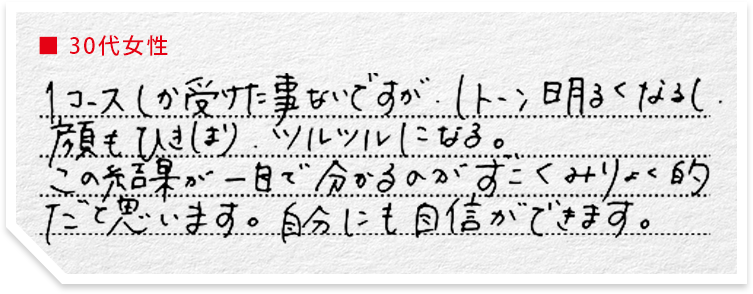 ■ 30代女性
1コースしか受けた事ないですが、1トーン明るくなるし、
顔もひきしまり、ツルツルになる。
この結果が一目で分かるのがすごくみりょく的
だと思います。自分にも自信ができます。